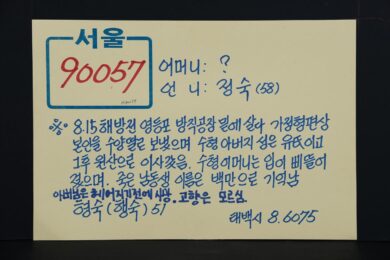 서울
90057
어머니: ?
언 니: 정숙 (58)
8.15 해방전 영등포 방직공장 밑에 살다 가정형편상
본인을 수양딸로 보냈으며 수형 아버지 성은 유氏이고
그후 원산으로 이사갔음. 수형 어머니는 입이 삐뚤어
졌으며. 죽은 남동생 이름은 백만으로 기억남
아버님은 헤어지기전에 사망. 고향은 모르심
형숙 (행숙) 51
태백시 8.6075